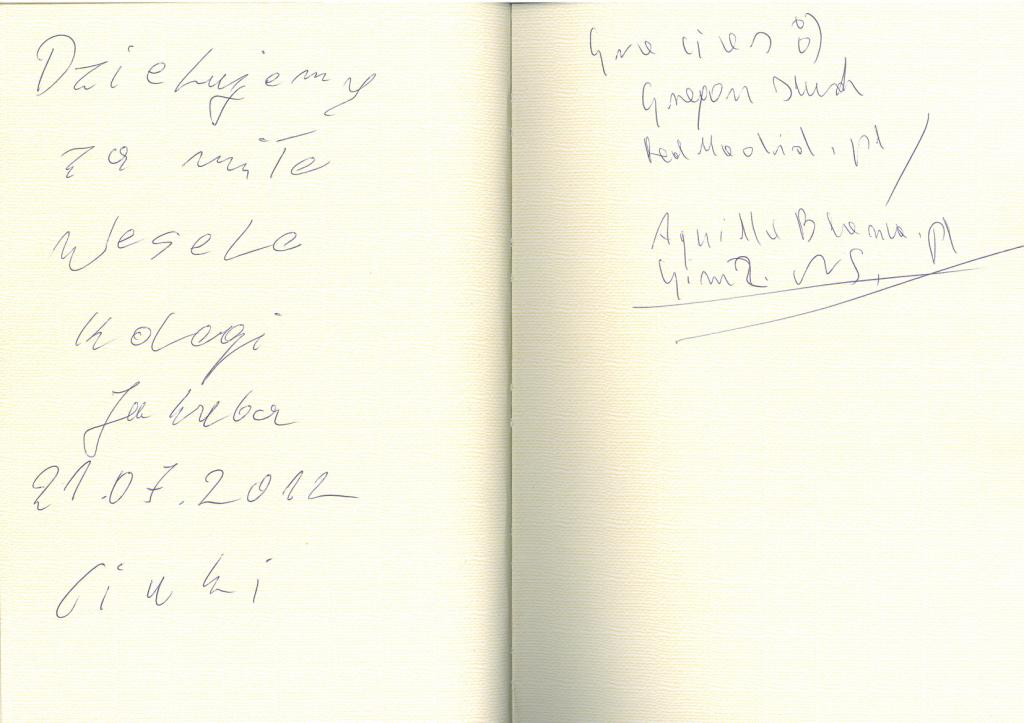 Dziekujemy
za miłe
Wesele
Kolegi
Jakuba
21.07.2012
Ciuki
Gracias :)
RealMadrid.pl /
AguillaBlanca.pl
Gim 2. NS.